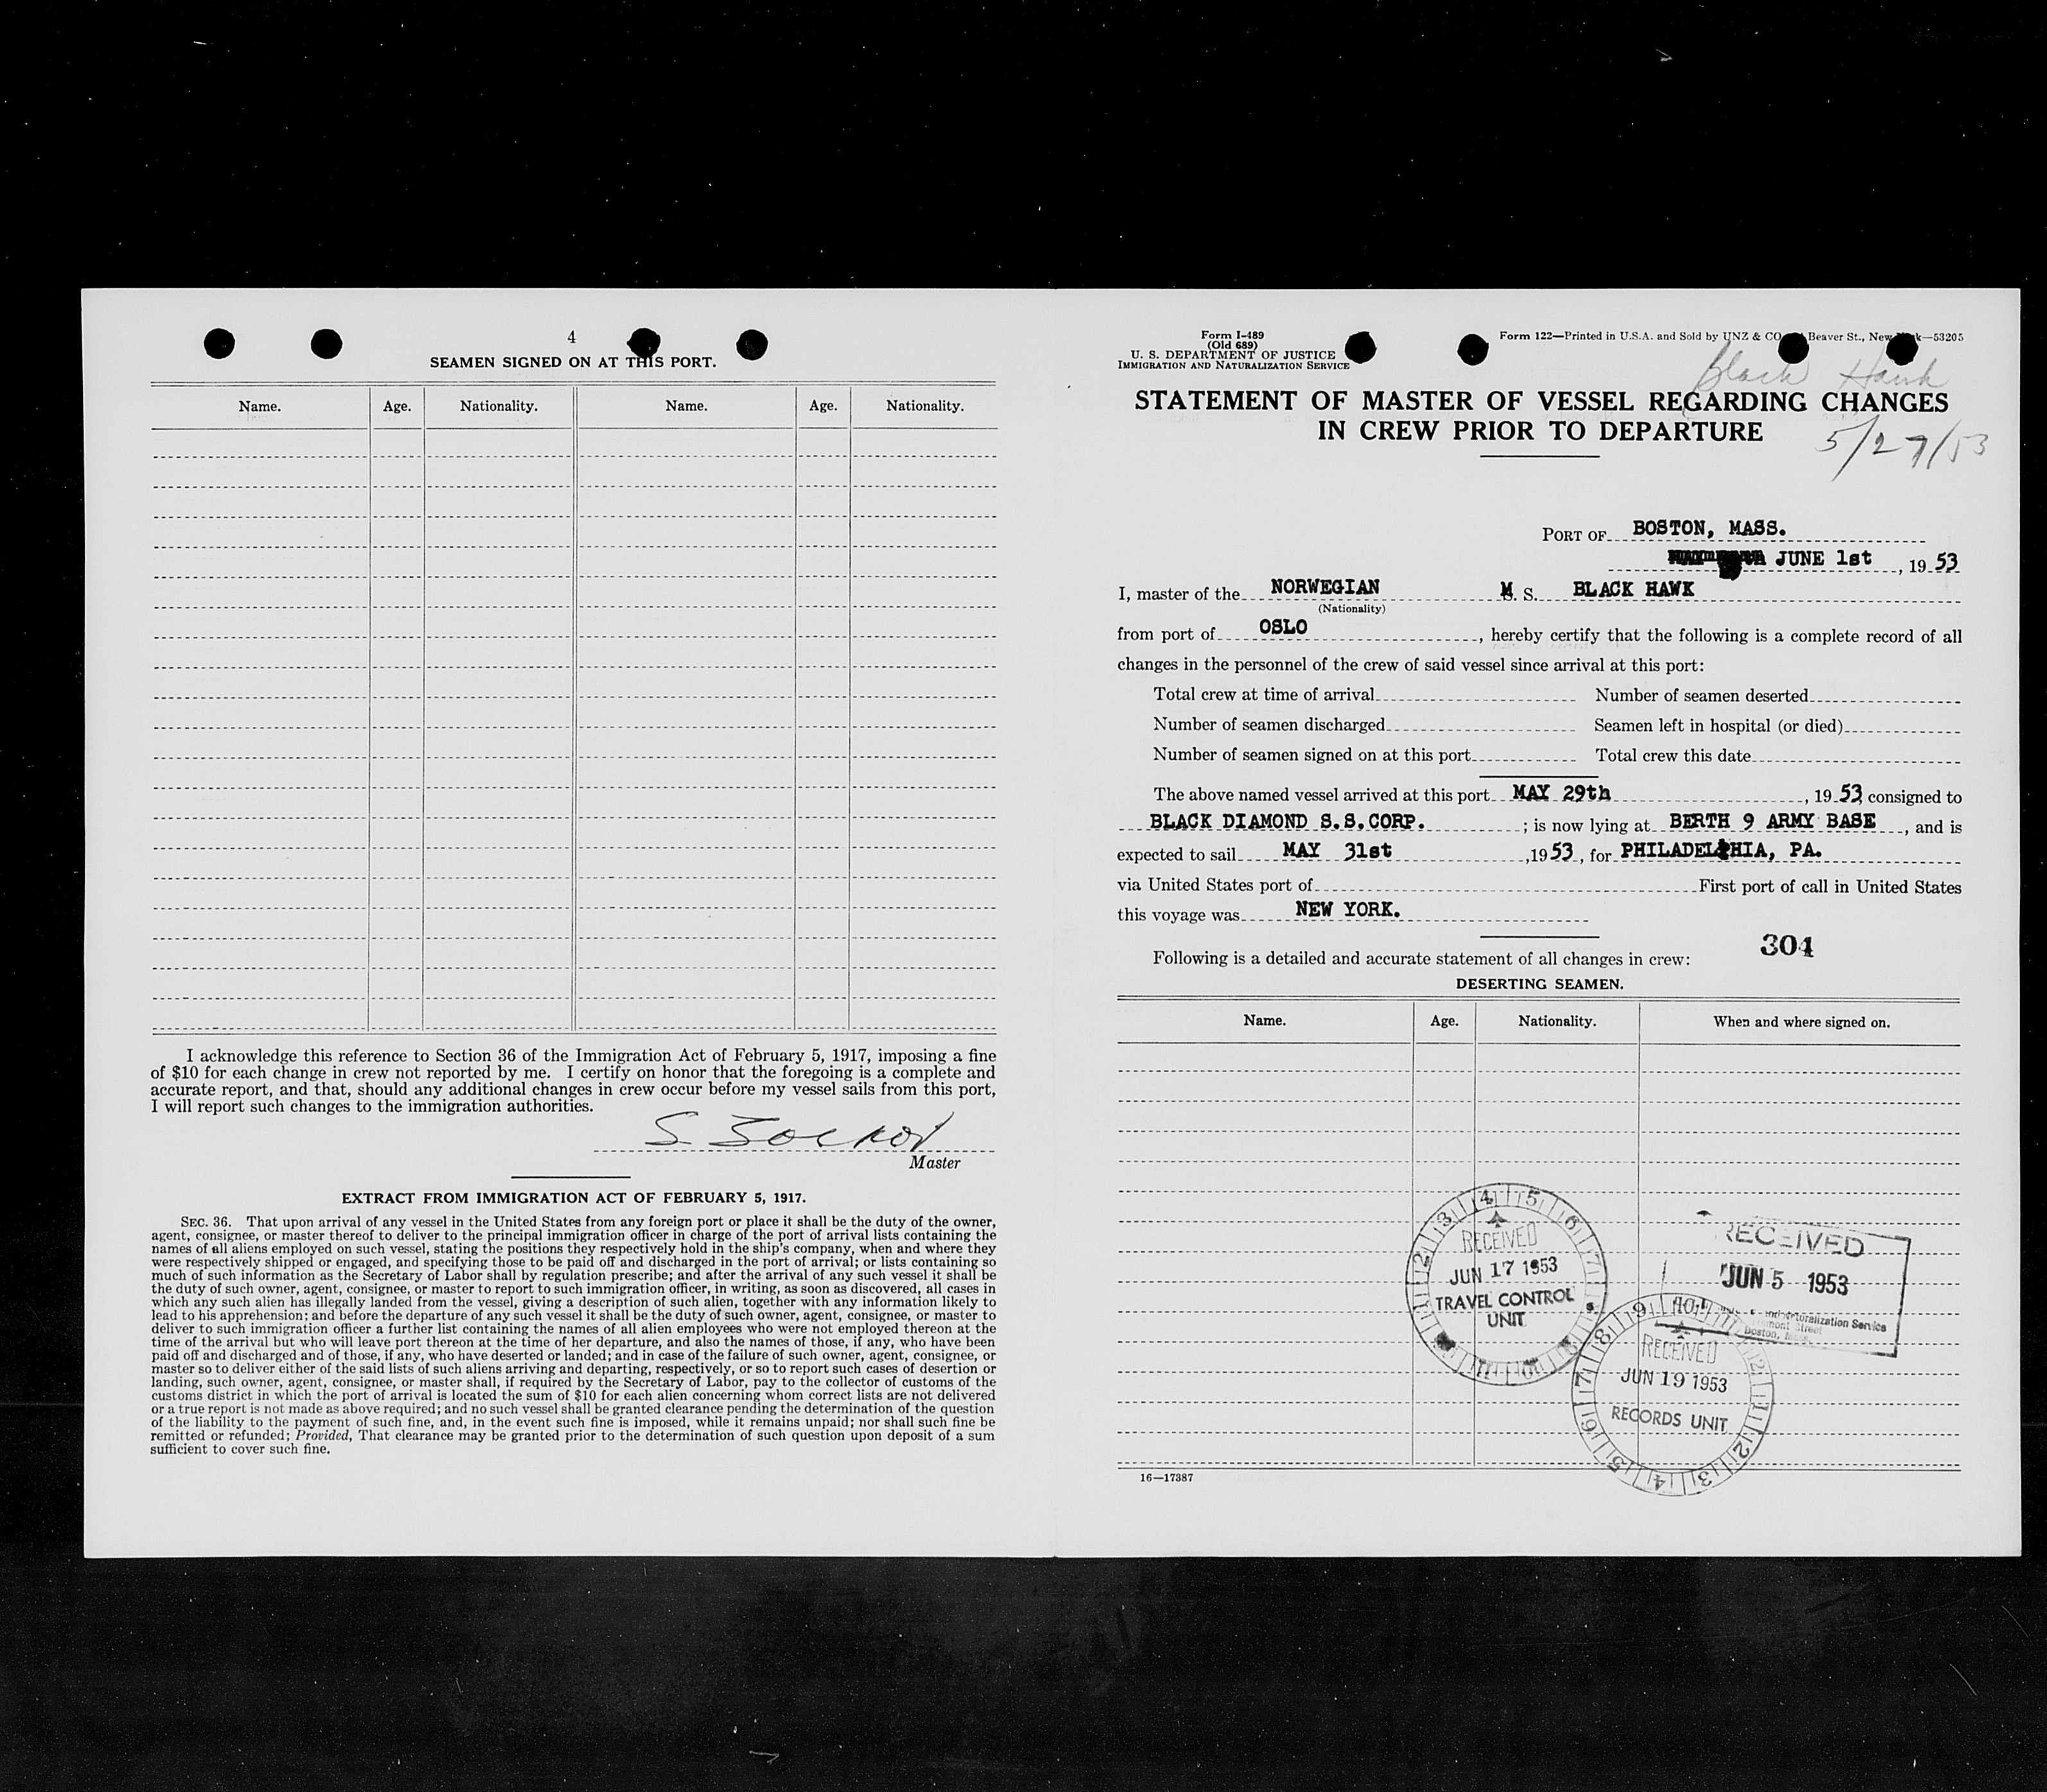 4
SEAMEN SIGNED ON AT THIS PORT.
Name. Age. Nationality. Name. Age. Nationality.
I acknowledge this reference to Section 36 of the Immigration Act of February 5, 1917, imposing a fine
of $10 for each change in crew not reported by me. I certify on honor that the foregoing is a complete and
accurate report, and that, should any additional changes in crew occur before my vessel sails from this port,
I will report such changes to the immigration authorities.
Master
EXTRACT FROM IMMIGRATION ACT OF FEBRUARY 5, 1917.
SEC. 36. That upon arrival of any vessel in the United States from any foreign port or place it shall be the duty of the owner,
agent, consignee, or master thereof to deliver to the principal immigration officer in charge of the port of arrival lists containing the
names of all aliens employed on such vessel, stating the positions they respectively hold in the ship's company, when and where they
were respectively shipped or engaged, and specifying those to be paid off and discharged in the port of arrival; or lists containing so
much of such information as the Secretary of Labor shall by regulation prescribe; and after the arrival of any such vessel it shall be
the duty of such owner, agent, consignee, or master to report to such immigration officer, in writing, as soon as discovered, all cases in
which any such alien has illegally landed from the vessel, giving a description of such alien, together with any information likely to
lead to his apprehension; and before the departure of any such vessel it shall be the duty of such owner, agent, consignee, or master to
deliver to such immigration officer a further list containing the names of all alien employees who were not employed thereon at the
time of the arrival but who will leave port thereon at the time of her departure, and also the names of those, if any, who have been
paid off and discharged and of those, if any, who have deserted or landed; and in case of the failure of such owner, agent, consignee, or
master so to deliver either of the said lists of such aliens arriving and departing, respectively, or so to report such cases of desertion or
landing, such owner, agent, consignee, or master shall, if required by the Secretary of Labor, pay to the collector of customs of the
customs district in which the port of arrival is located the sum of $10 for each alien concerning whom correct lists are not delivered
or a true report is not made as above required; and no such vessel shall be granted clearance pending the determination of the question
of the liability to the payment of such fine, and, in the event such fine is imposed, while it remains unpaid; nor shall such fine be
remitted or refunded; Provided, That clearance may be granted prior to the determination of such question upon deposit of a sum
sufficient to cover such fine.
Form I-489
(Old 689)
U. S. DEPARTMENT OF JUSTICE
IMMIGRATION AND NATURALIZATION SERVICE
Form 122—Printed in U.S.A. and Sold by UNZ & CO. Beaver St., New —53205
Black Hawk
STATEMENT OF MASTER OF VESSEL REGARDING CHANGES
IN CREW PRIOR TO DEPARTURE
5/27/53
PORT OF BOSTON, MASS.
JUNE 1st, 19 53
I, master of the NORWEGIAN M. S. BLACK HAWK
(Nationality)
from port of OSLO, hereby certify that the following is a complete record of all
changes in the personnel of the crew of said vessel since arrival at this port:
Total crew at time of arrival Number of seamen deserted
Number of seamen discharged Seamen left in hospital (or died)
Number of seamen signed on at this port Total crew this date
The above named vessel arrived at this port MAY 29th, 19 53 consigned to
BLACK DIAMOND S.S.CORP. ; is now lying at BERTH 9 ARMY BASE, and is
expected to sail MAY 31st, 19 53, for PHILADELPHIA, PA.
via United States port of First port of call in United States
this voyage was NEW YORK.
304
Following is a detailed and accurate statement of all changes in crew:
DESERTING SEAMEN.
Name. Age. Nationality. When and where signed on.
RECEIVED
JUN 17 1953
TRAVEL CONTROL
UNIT
RECEIVED
JUN 5 1953
Naturalization Service
Street
Boston,
RECEIVED
JUN 19 1953
RECORDS UNIT
16—17387